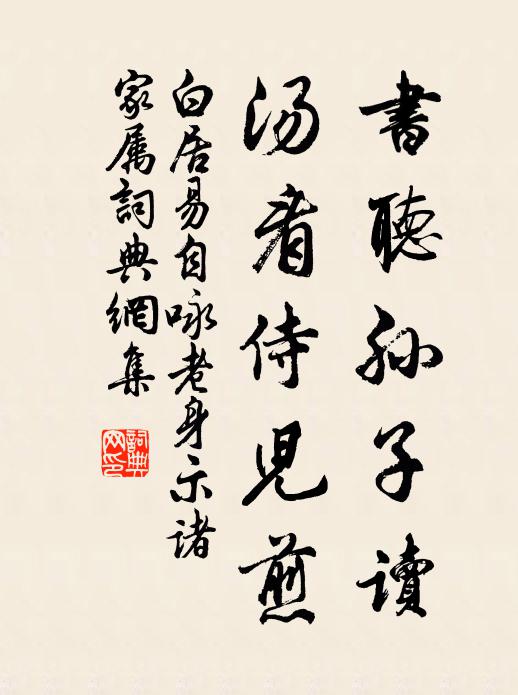 書聽孙子讀
汤看侍児煎
白居易自咏老身示诸
家属詞典網集
詞典
网印